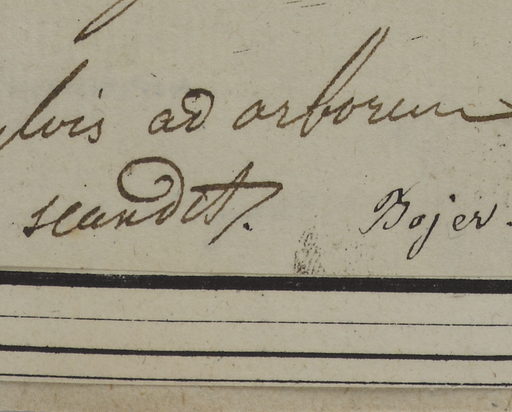 ylvis ad arborum
scandit. Bojer.